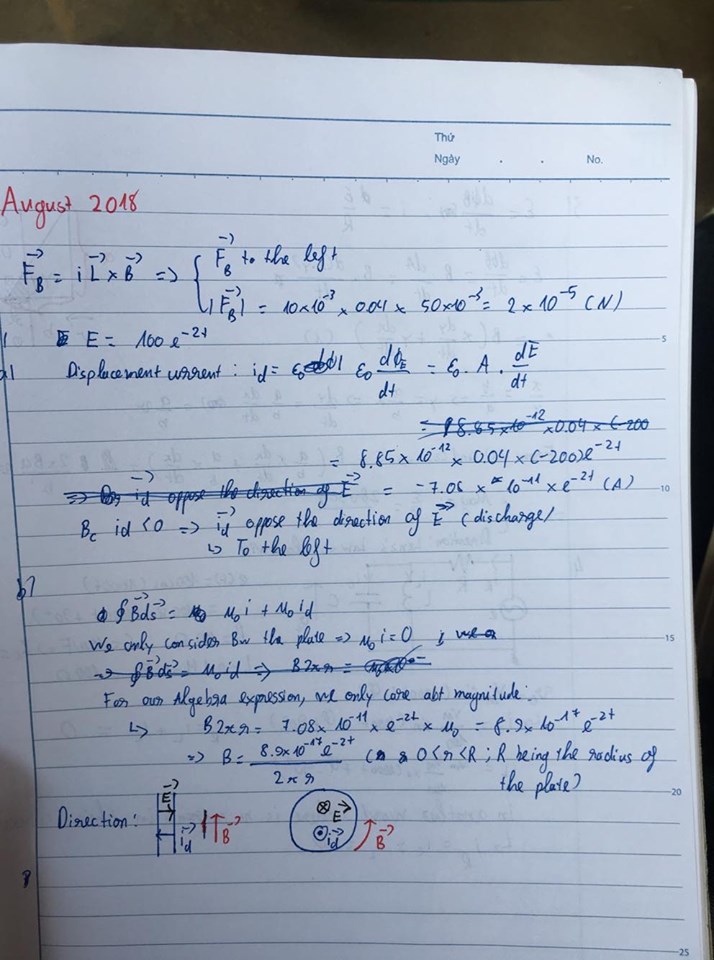 Thứ
Ngày . . No.
August 2018
F_B = i L × B => { F_B to the left
|F_B| = 10×10⁻³ × 0.04 × 50×10⁻³ = 2 × 10⁻⁵ (N)
1 E = 100 e^(-2t)
5
a) Displacement current : i_d = ε₀ dΦ_E/dt = ε₀ . A . dE/dt
= 8.85×10⁻¹² × 0.04 × (-200
= 8.85 × 10⁻¹² × 0.04 × (-200)e^(-2t)
=> i_d oppose the direction of E = -7.08 × 10⁻¹¹ × e^(-2t) (A)
10
Bc id < 0 => i_d oppose the direction of E (discharge)
↳ To the left
b)
∮ B ds = μ₀ i + μ₀ id
We only consider Bw the plate => μ₀ i = 0
15
=> ∮ B ds = μ₀ id => B2πr =
For our Algebra expression, we only care abt magnitude.
↳ B2πr = 7.08 × 10⁻¹¹ × e^(-2t) × μ₀ = 8.9 × 10⁻¹⁷ e^(-2t)
=> B = 8.9×10⁻¹⁷ e^(-2t) / 2πr ( 0<r<R ; R being the radius of
the plate)
20
Direction: E i_d B E i_d B
25